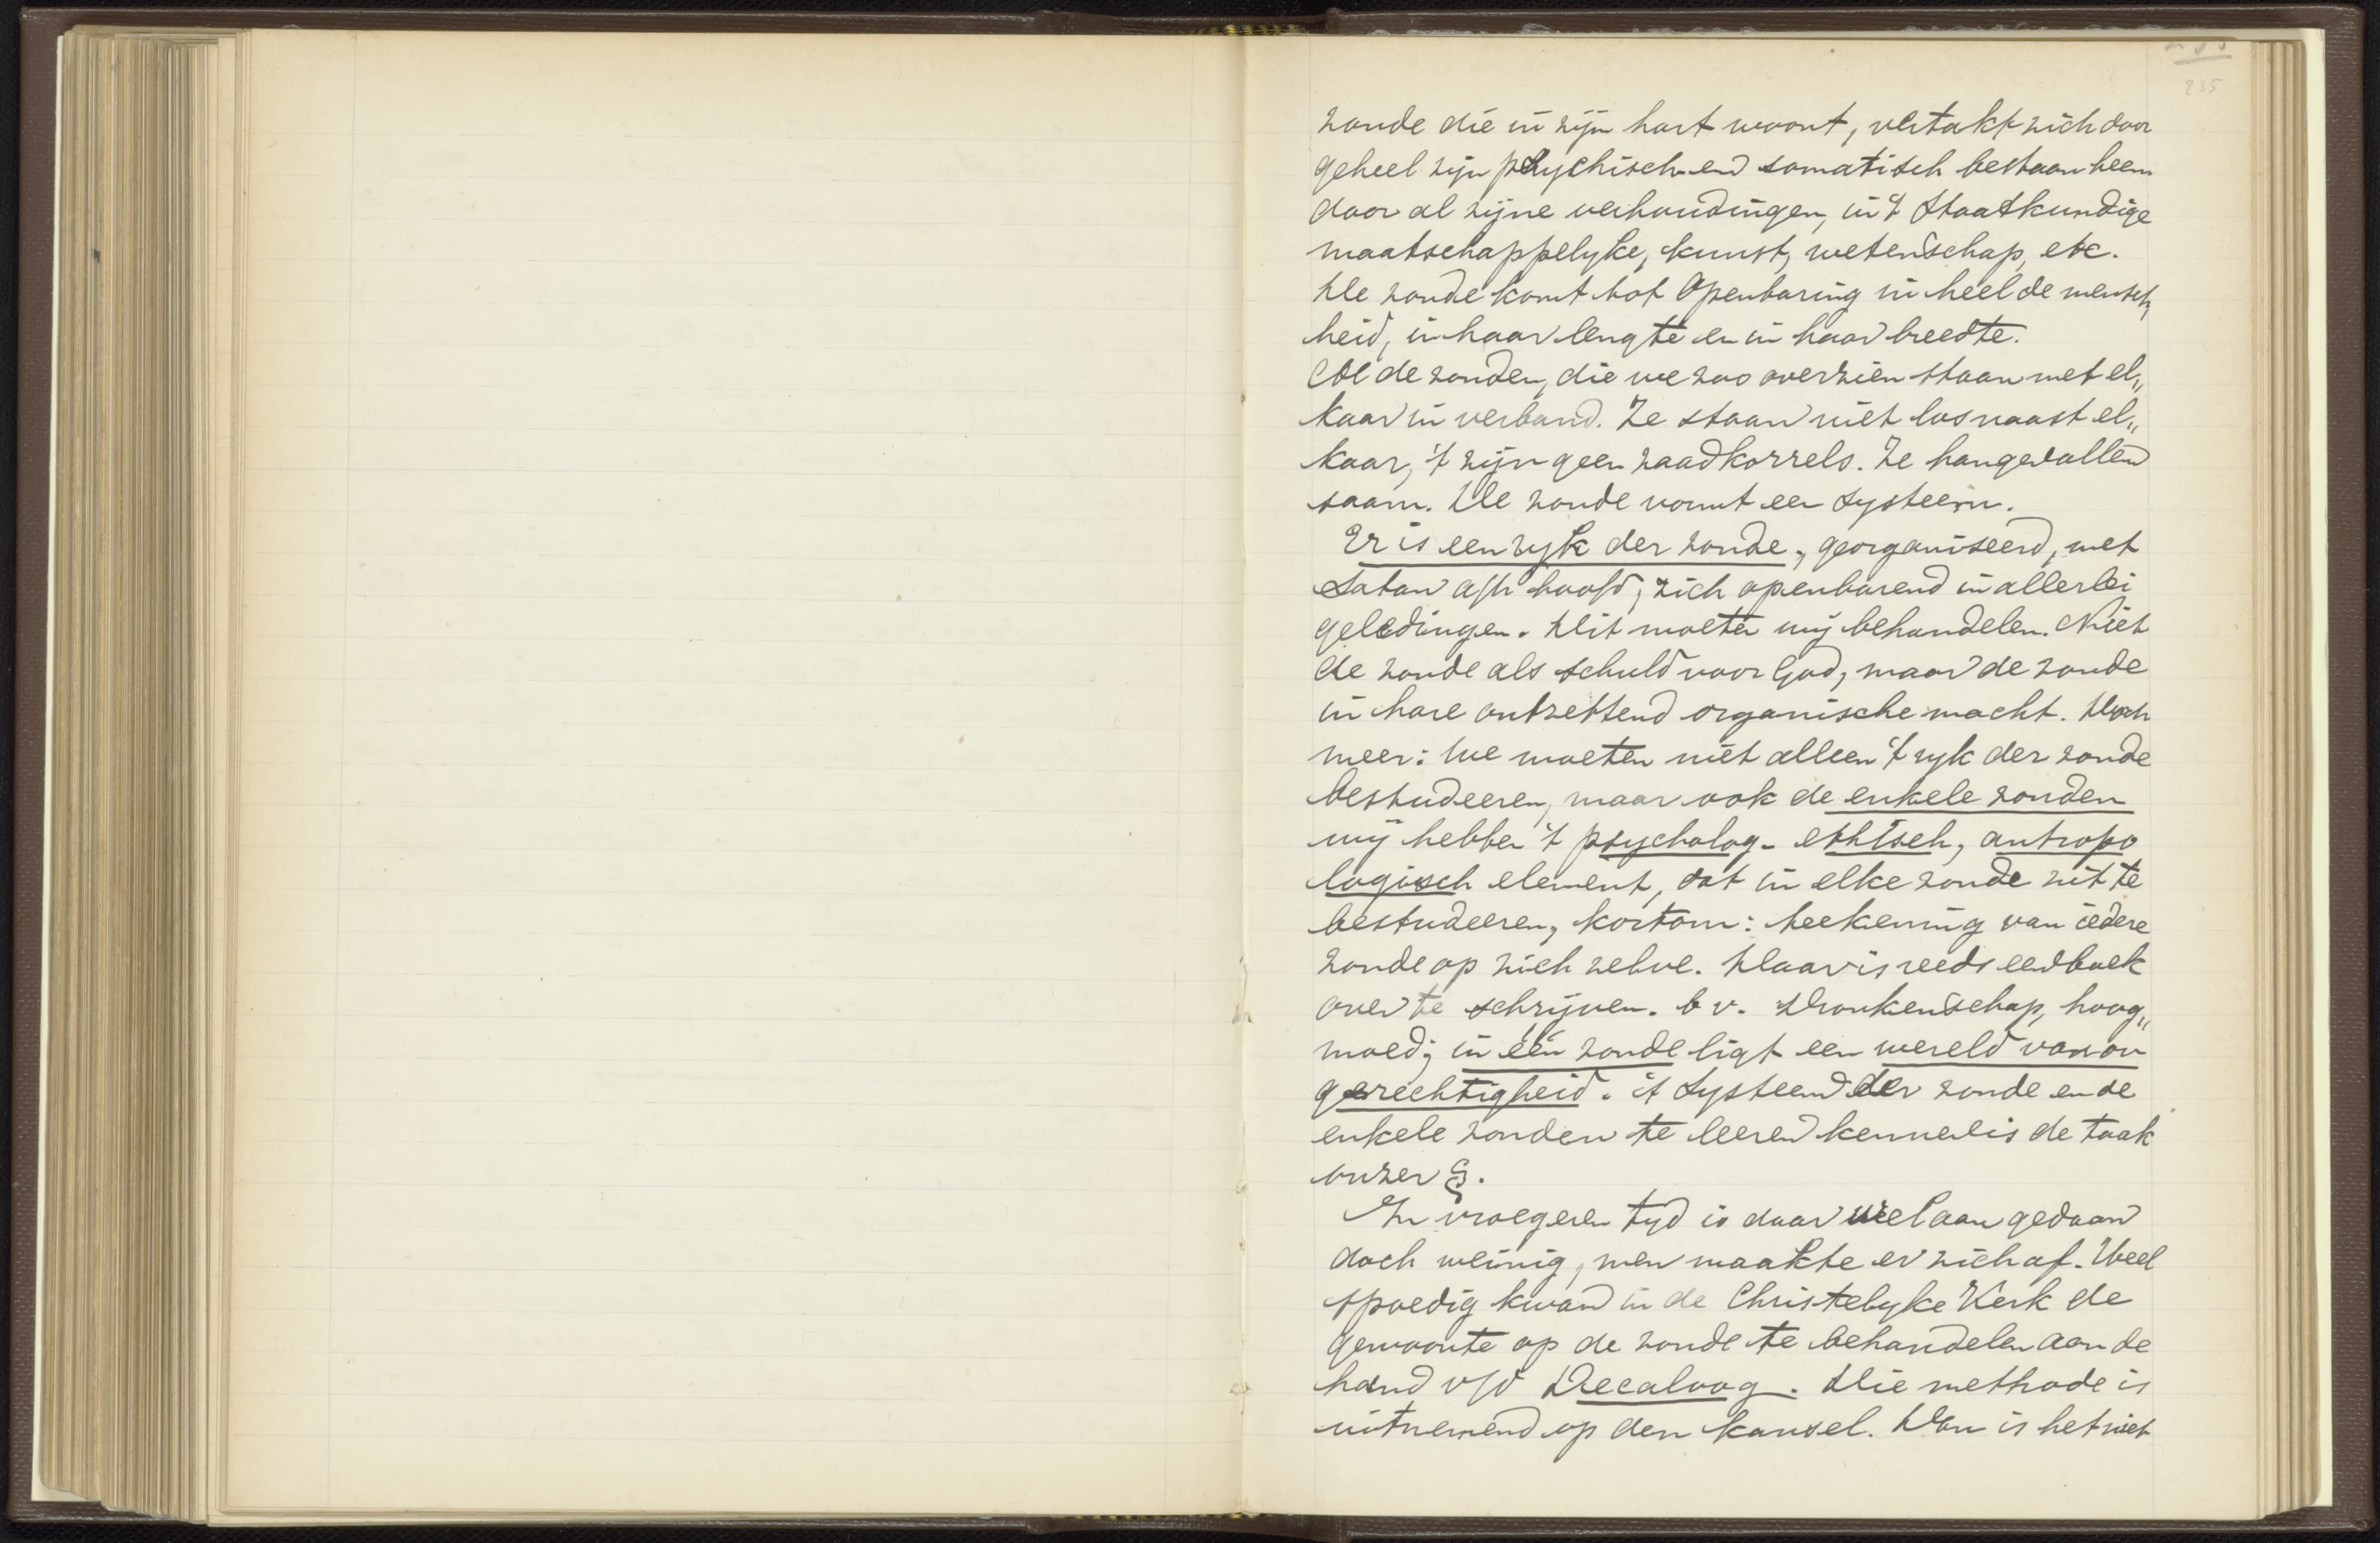 235
zonde die in zijn hart woont, vertakt zich door
geheel zijn psychisch en somatisch bestaan heen
door al zijne verhoudingen, in 't Staatkundige
maatschappelyke, kunst, wetenschap, etc.
De zonde komt tot Openbaring in heel de mensch„
heid, in haar lengte en in haar breedte.
Al de zonden, die we zoo overzien staan met el„
kaar in verband. Ze staan niet los naast el„
kaar, 't zijn geen zaadkorrels. Ze hangen allen
saam. De zonde vormt een Systeem.
Er is een ryk der zonde, georganiseerd, met
Satan a/h hoofd, zich openbarend in allerlei
geledingen. Dit moeten wij behandelen. Niet
de zonde als schuld voor God, maar de zonde
in hare ontzettend organische macht. Doch
meer: We moeten niet alleen 't ryk der zonde
bestudeeren, maar ook de enkele zonden
wij hebben 't psycholog- ethisch, antropo
logisch element, dat in elke zonde zit te
bestudeeren, kortom: teekening van iedere
zonde op zich zelve. Daar is reeds een boek
over te schrijven. b v. Dronkenschap, hoog„
moed; in één zonde ligt een wereld van on
gerechtigheid. 't Systeem der zonde en de
enkele zonden te leeren kennen is de taak
onzer §.
In vroegeren tyd is daar wel aan gedaan
doch weinig, men maakte er zich af. Veel
spoedig kwam in de Christelyke Kerk de
gewoonte op de zonde te behandelen aan de
hand v/d Decaloog. Die methode is
uitnemend op den kansel. Dan is het niet